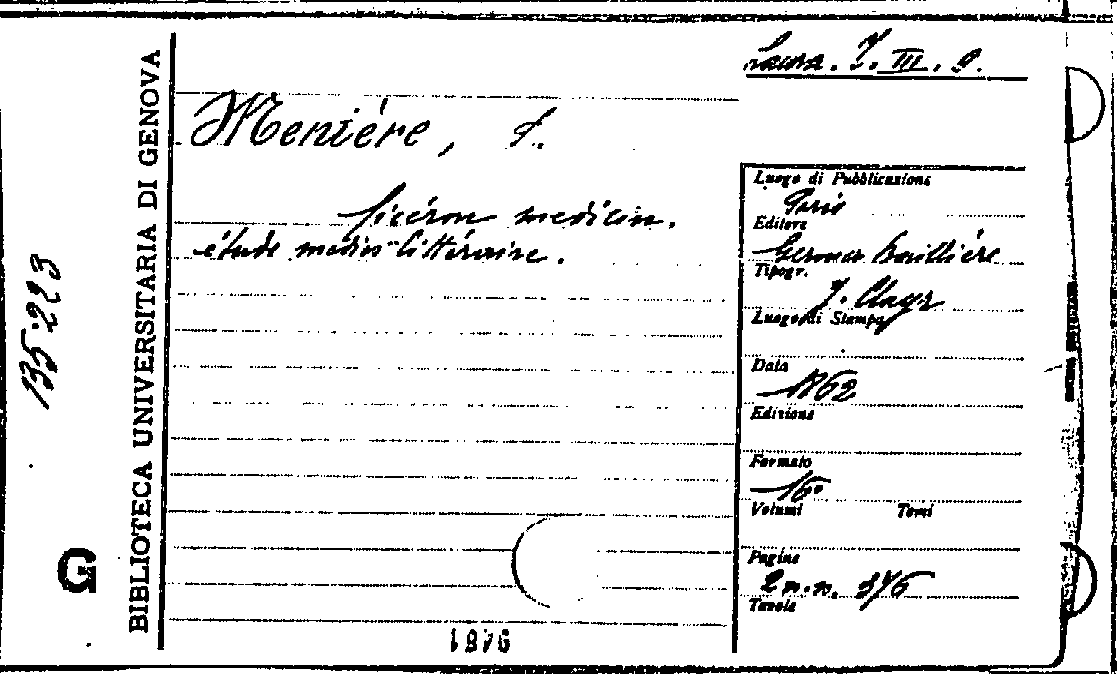 Laura. J. III. 9.
Menière, P.
Cicéron medicin.
étude medico-littéraire.
Luogo di Pubblicazione
Paris
Editore
Germer Baillière
Tipogr.
J. Claye
Luogo di Stampa
Data
1862
Edizione
Formato
16°
Volumi Tomi
Pagine
2 n.n. 376
Tavole
1876
BIBLIOTECA UNIVERSITARIA DI GENOVA
135·223
G